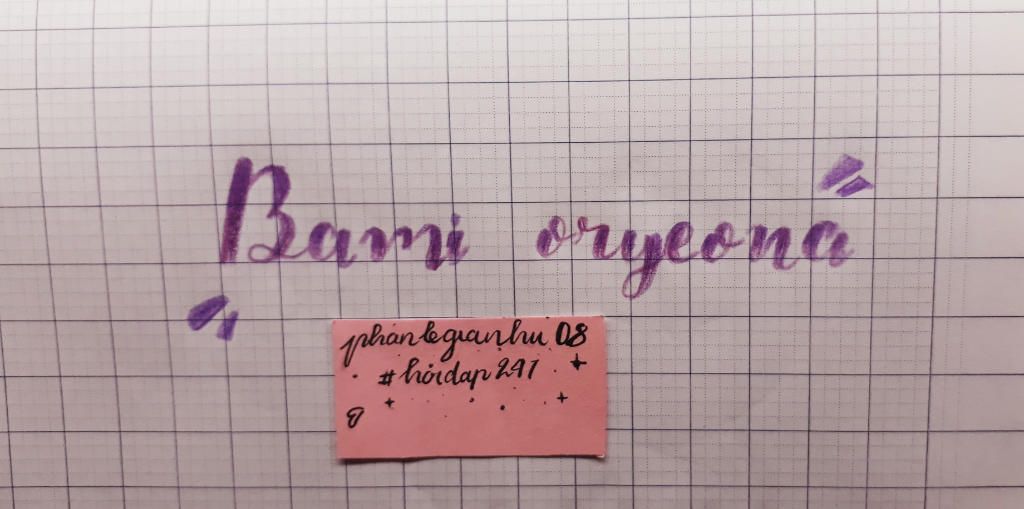 Bami oryeona
phanlegianhu 08
#hoidap247